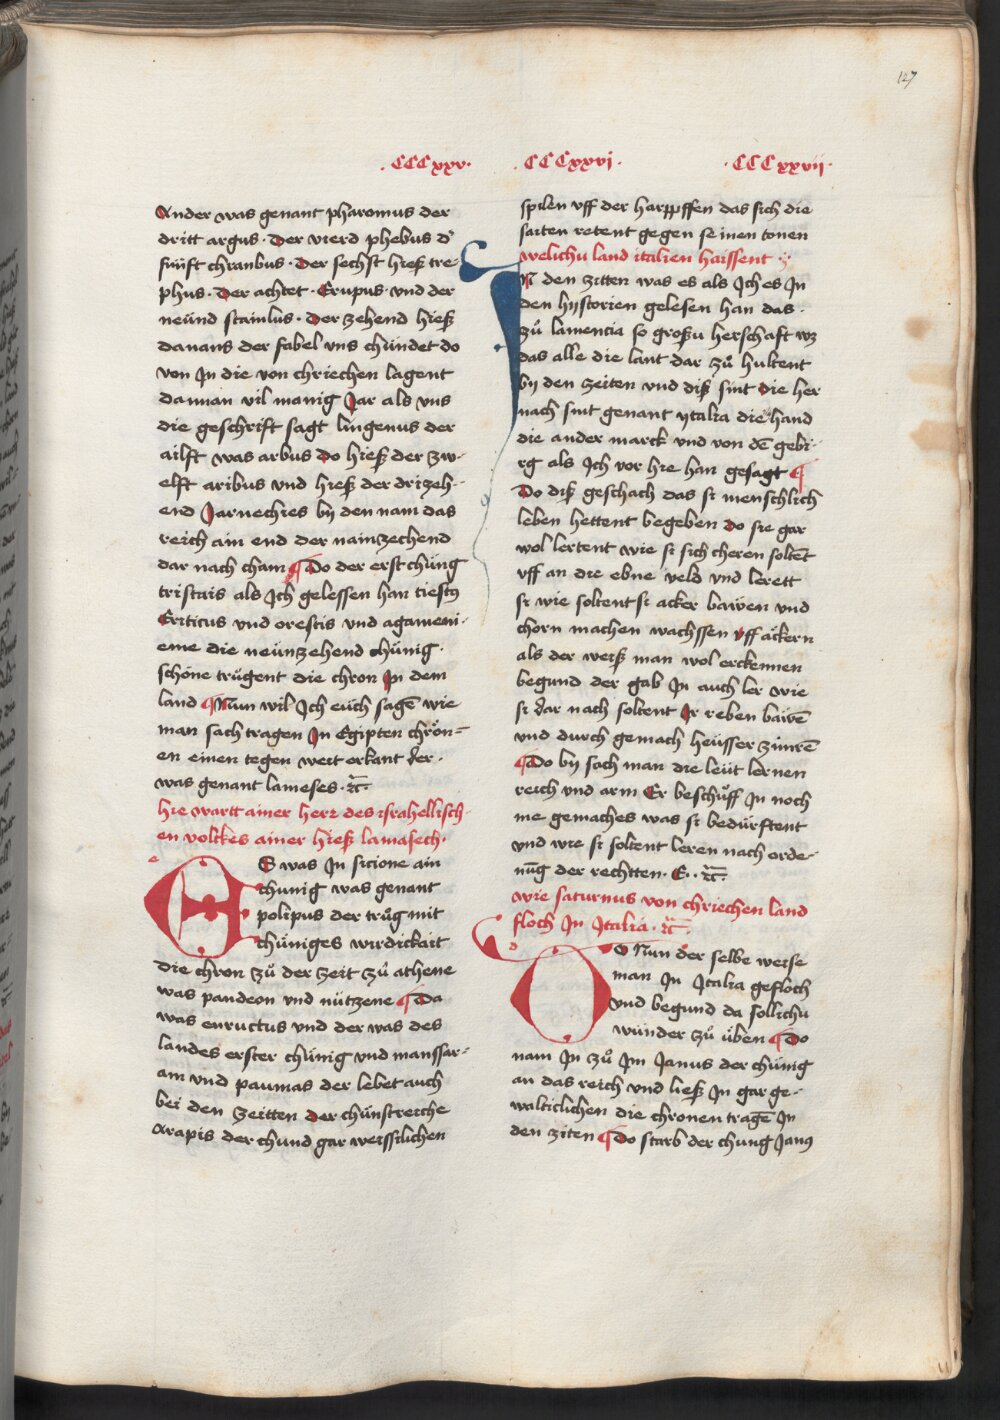 127
·CCCxxv·
·CCCxxvi·
·CCCxxvii·
Ander was genant pharomus der
dritt argus · Der vierd phebus d'
fúnft chranbus · Der sechst hieß tre-
phus · Der achtet · Erupus · vnd der
neúnd stainlus · Der zehend hieß
danans der fabel vns chúndet do
von Jn die von chriechen lagent
dannan vil manig Jar als vns
die geschrift sagt lingenus der
ailft was arbus Do hieß der zw-
elft aribus vnd hieß der drizeh-
end Jarnechies by den nam das
reich ain end der nainzechend
dar nach cham ¶ Do der erst chúng
tristais als Jch gelessen han tiestꝰ
Eriticus vnd orestis vnd agameni-
eme die neúnzehend chúnig ·
schöne trůgent die chron Jn dem
land ¶ Num wil Jch eúch sagē wie
man sach tragen Jn Egipten chrön-
en einen tegen weit erkant der ·
was genant lameses · ꝛc̄ ·
hie wartt ainer herr des israhellisch-
en volckes ainer hieß lamasech ·
E was Jn sicione ain
chunig was genant
polipus der trůg mit
chúniges wirdickait
die chron zů der zeit zů athene
was pandeon vnd nútzene ¶ Da
was enructus vnd der was des
landes erster chúnig vnd manssar-
am vnd paumas der lebet auch
bei den zeitten der chúnstreiche
Arapis der chund gar weisslichen
spilen vff der harpffen das sich die
saiten retent gegen seinen tonen
welichu land italien haissent ·
N den zitten was es als Jch es Jn
den hystorien gelesen han das ·
zů lamentia so großu herschaft wz
das alle die lant dar zů hultent
by den zeiten vnd diß sint die her
nach sint genant ytalia die hand
die ander marck vnd von dē gebi-
rg als Jch vor hie han gesagt ¶
Do diß geschach das si menschlich
leben hettent begeben do sie gar
wol lertent wie si sich cheren soltēt
vff an die ebne veld vnd lerett
si wie soltent si acker bawen vnd
chorn machen wachssen vff äckern
als der weiß man wol erckennen
begund der gab Jn auch ler wie
si dar nach soltent Jr reben bawē
vnd durch gemach heússer zimrē
¶ Do by sach man die leút lernen
reich vnd arm Er beschůff Jn noch
me gemaches was si bedúrftent
vnd wie si soltent leren nach orde-
nūg der rechtten · E · · ꝛc̄ ·
wie saturnus von chriechen land
floch Jn Jtalia · ꝛc̄ ·
O Nun der selbe weise
man Jn Jtalia gefloch
vnd begund da sollichu
wunder zů úben ¶ Do
nam Jn zů Jm Janus der chúnig
an das reich vnd ließ Jn gar ge-
walticlichen die chronen tragē Jn
den ziten ¶ Do starb der chung Janꝰ